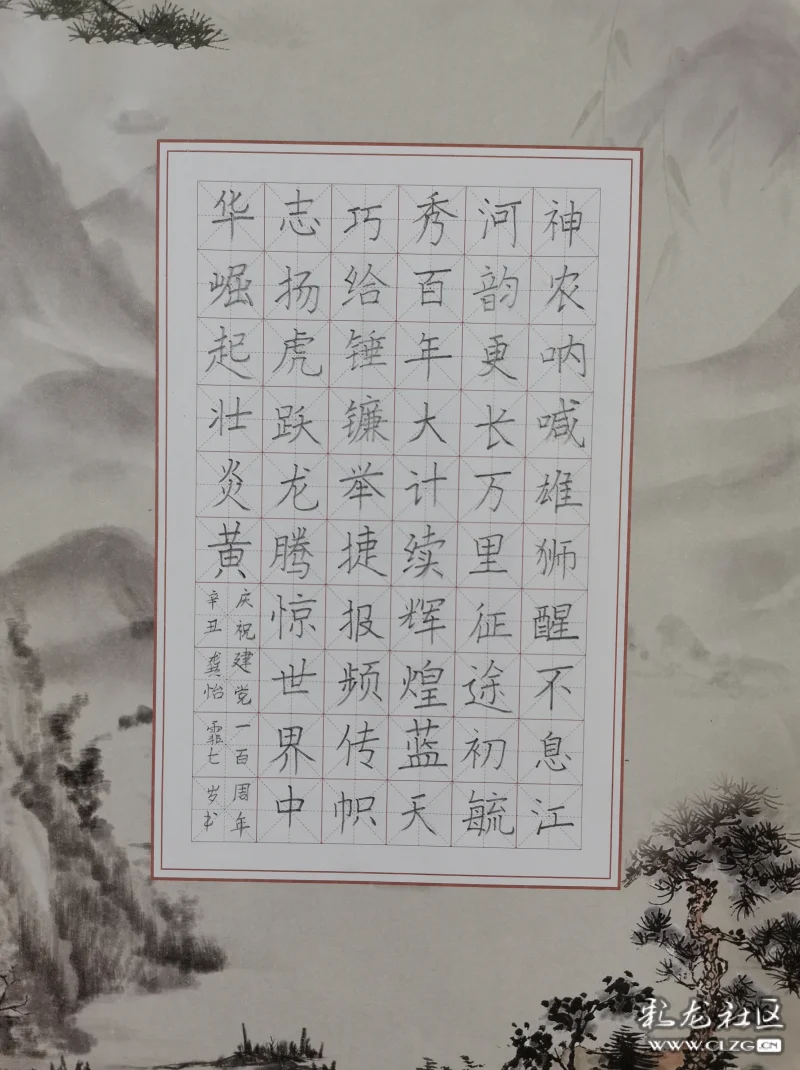 神农呐喊雄狮醒不息江
河韵更长万里征途初毓
秀百年大计续辉煌蓝天
巧给锤镰举捷报频传帜
志扬虎跃龙腾惊世界中
华崛起壮炎黄
庆祝建党一百周年
辛丑龚怡霏七岁书
彩龙社区
WWW.CLZG.CN